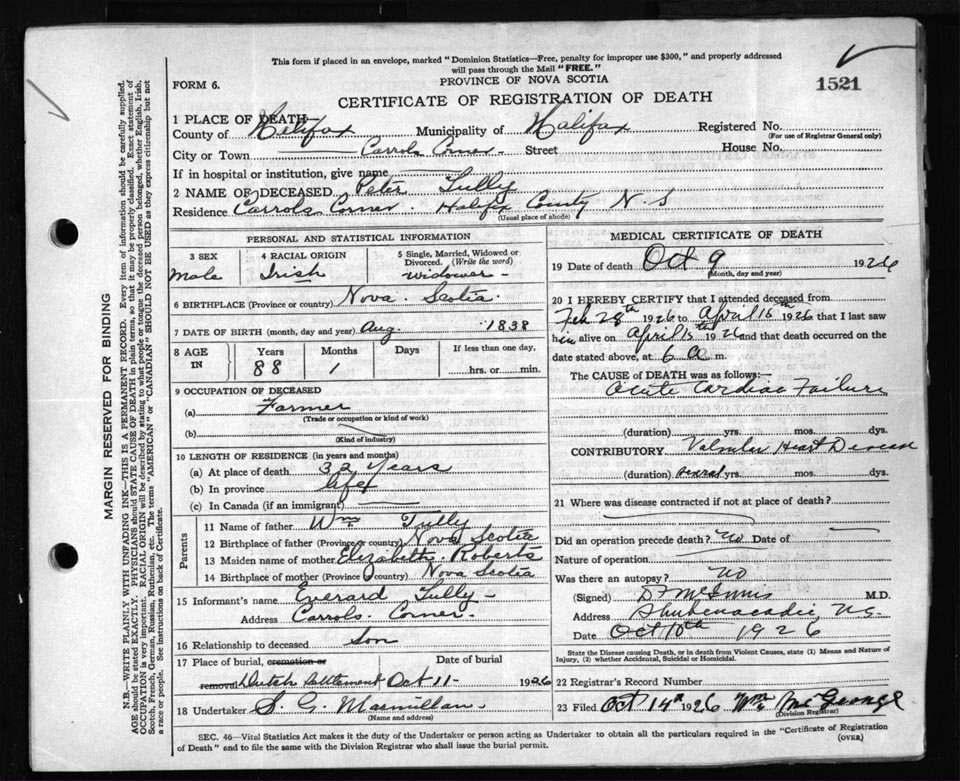 This form if placed in an envelope, marked "Dominion Statistics—Free, penalty for improper use $300," and properly addressed
will pass through the Mail "FREE."
PROVINCE OF NOVA SCOTIA
FORM 6.
1521
CERTIFICATE OF REGISTRATION OF DEATH
1 PLACE OF DEATH—
County of Halifax Municipality of Halifax Registered No.
(For use of Registrar General only)
City or Town Carrols Corner Street House No.
If in hospital or institution, give name
2 NAME OF DECEASED Peter Tully
Residence Carrols Corner. Halifax County N.S
(Usual place of abode)
PERSONAL AND STATISTICAL INFORMATION
3 SEX 4 RACIAL ORIGIN 5 Single, Married, Widowed or Divorced. (Write the word)
Male Irish widower
6 BIRTHPLACE (Province or country) Nova Scotia
7 DATE OF BIRTH (month, day and year) Aug 1838
8 AGE IN Years Months Days If less than one day,
88 1 hrs. or min.
9 OCCUPATION OF DECEASED
(a) Farmer
(Trade or occupation or kind of work)
(b)
(Kind of industry)
10 LENGTH OF RESIDENCE (in years and months)
(a) At place of death 32 Years
(b) In province life
(c) In Canada (if an immigrant)
Parents
11 Name of father Wm Tully
12 Birthplace of father (Province or country) Nova Scotia
13 Maiden name of mother Elizabeth Roberts
14 Birthplace of mother (Province or country) Nova Scotia
15 Informant's name Everard Tully
Address Carrols. Corner.
16 Relationship to deceased Son
17 Place of burial, cremation or Date of burial
removal Dutch Settlement Oct 11 1926
18 Undertaker S. G. Macmillan
(Name and address)
MEDICAL CERTIFICATE OF DEATH
19 Date of death Oct 9 1926
(Month, day and year)
20 I HEREBY CERTIFY that I attended deceased from
Feb 28th 1926 to April 15th 1926 that I last saw
him alive on April 15th 1926 and that death occurred on the
date stated above, at 6 a m.
The CAUSE of DEATH was as follows:—
Acute Cardiac Failure
(duration) yrs. mos. dys.
CONTRIBUTORY Valvular Heart Disease
(duration) several yrs. mos. dys.
21 Where was disease contracted if not at place of death?
Did an operation precede death? No Date of
Nature of operation
Was there an autopsy? No
(Signed) D McInnis M.D.
Address Shubenacadie, N.S.
Date Oct 10th 1926
State the Disease causing Death, or in death from Violent Causes, state (1) Means and Nature of
Injury, (2) whether Accidental, Suicidal or Homicidal.
22 Registrar's Record Number
23 Filed Oct 14th 1926 Wm McGeorge
(Division Registrar)
SEC. 46—Vital Statistics Act makes it the duty of the Undertaker or person acting as Undertaker to obtain all the particulars required in the "Certificate of Registration
of Death" and to file the same with the Division Registrar who shall issue the burial permit.
(OVER)
MARGIN RESERVED FOR BINDING
N.B.—WRITE PLAINLY WITH UNFADING INK—THIS IS A PERMANENT RECORD. Every item of information should be carefully supplied.
AGE should be stated EXACTLY. PHYSICIANS should STATE CAUSE OF DEATH in plain terms, so that it may be properly classified. Exact statement of
OCCUPATION is very important. RACIAL ORIGIN will be described by stating to what people or tongue the deceased person belonged, whether English, Irish,
Scotch, French, German, Russian, Ruthenian, etc. The terms "AMERICAN" or "CANADIAN" SHOULD NOT BE USED as they express citizenship but not
a race or people. See instructions on back of Certificate.